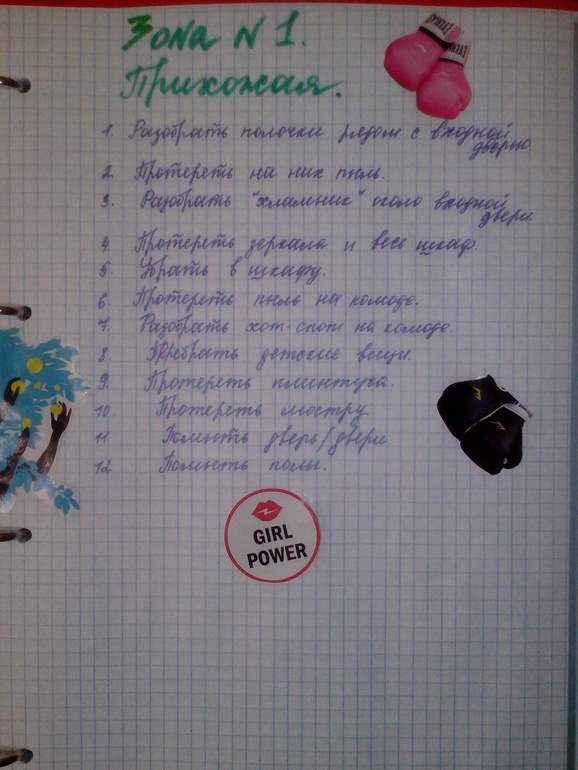 Зона N 1.
Прихожая.
1. Разобрать полочки рядом с входной
дверью
2. Протереть на них пыль.
3. Разобрать "хламник" около входной
двери
4. Протереть зеркала и весь шкаф.
5. Убрать в шкафу.
6. Протереть пыль на комоде.
7. Разобрать хот-спот на комоде.
8. Перебрать детские вещи.
9. Протереть плинтуса.
10. Протереть люстру
11 Помыть дверь/двери
12. Помыть полы.
GIRL
POWER